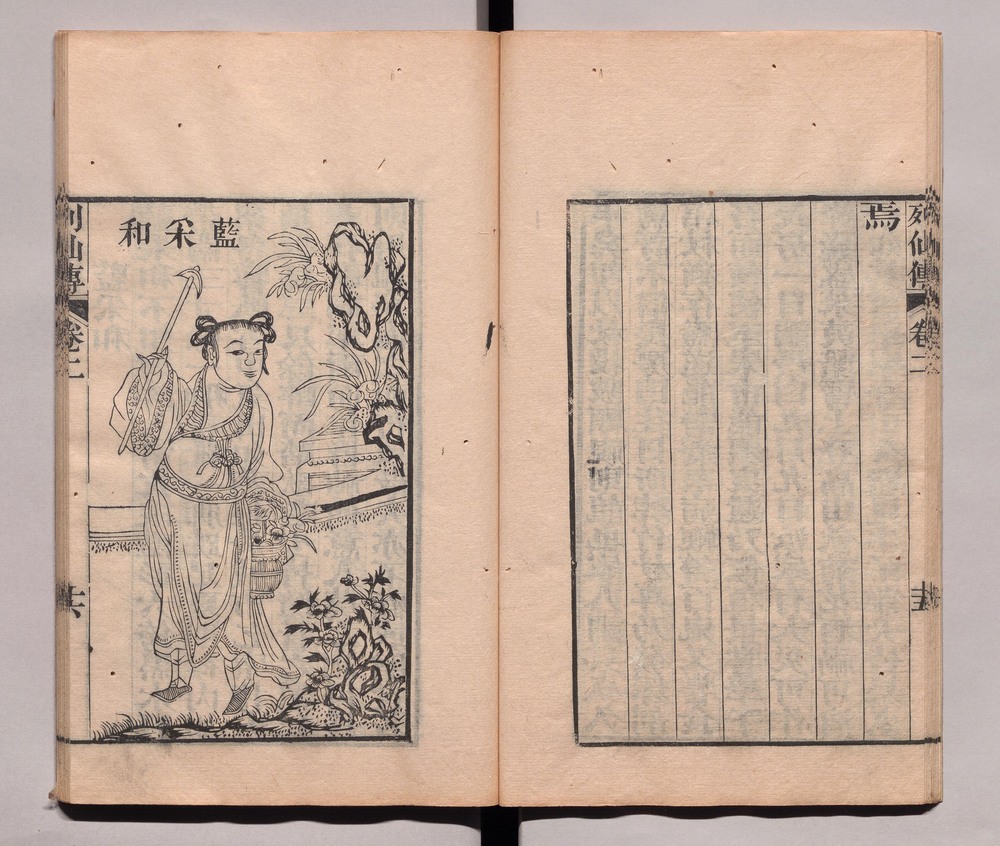 列仙傳
卷二
焉
藍采和
列仙傳
卷二